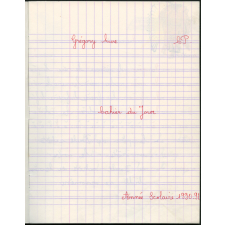 Gregory Luce CP
Cahier du Jour
Année Scolaire 1990.91